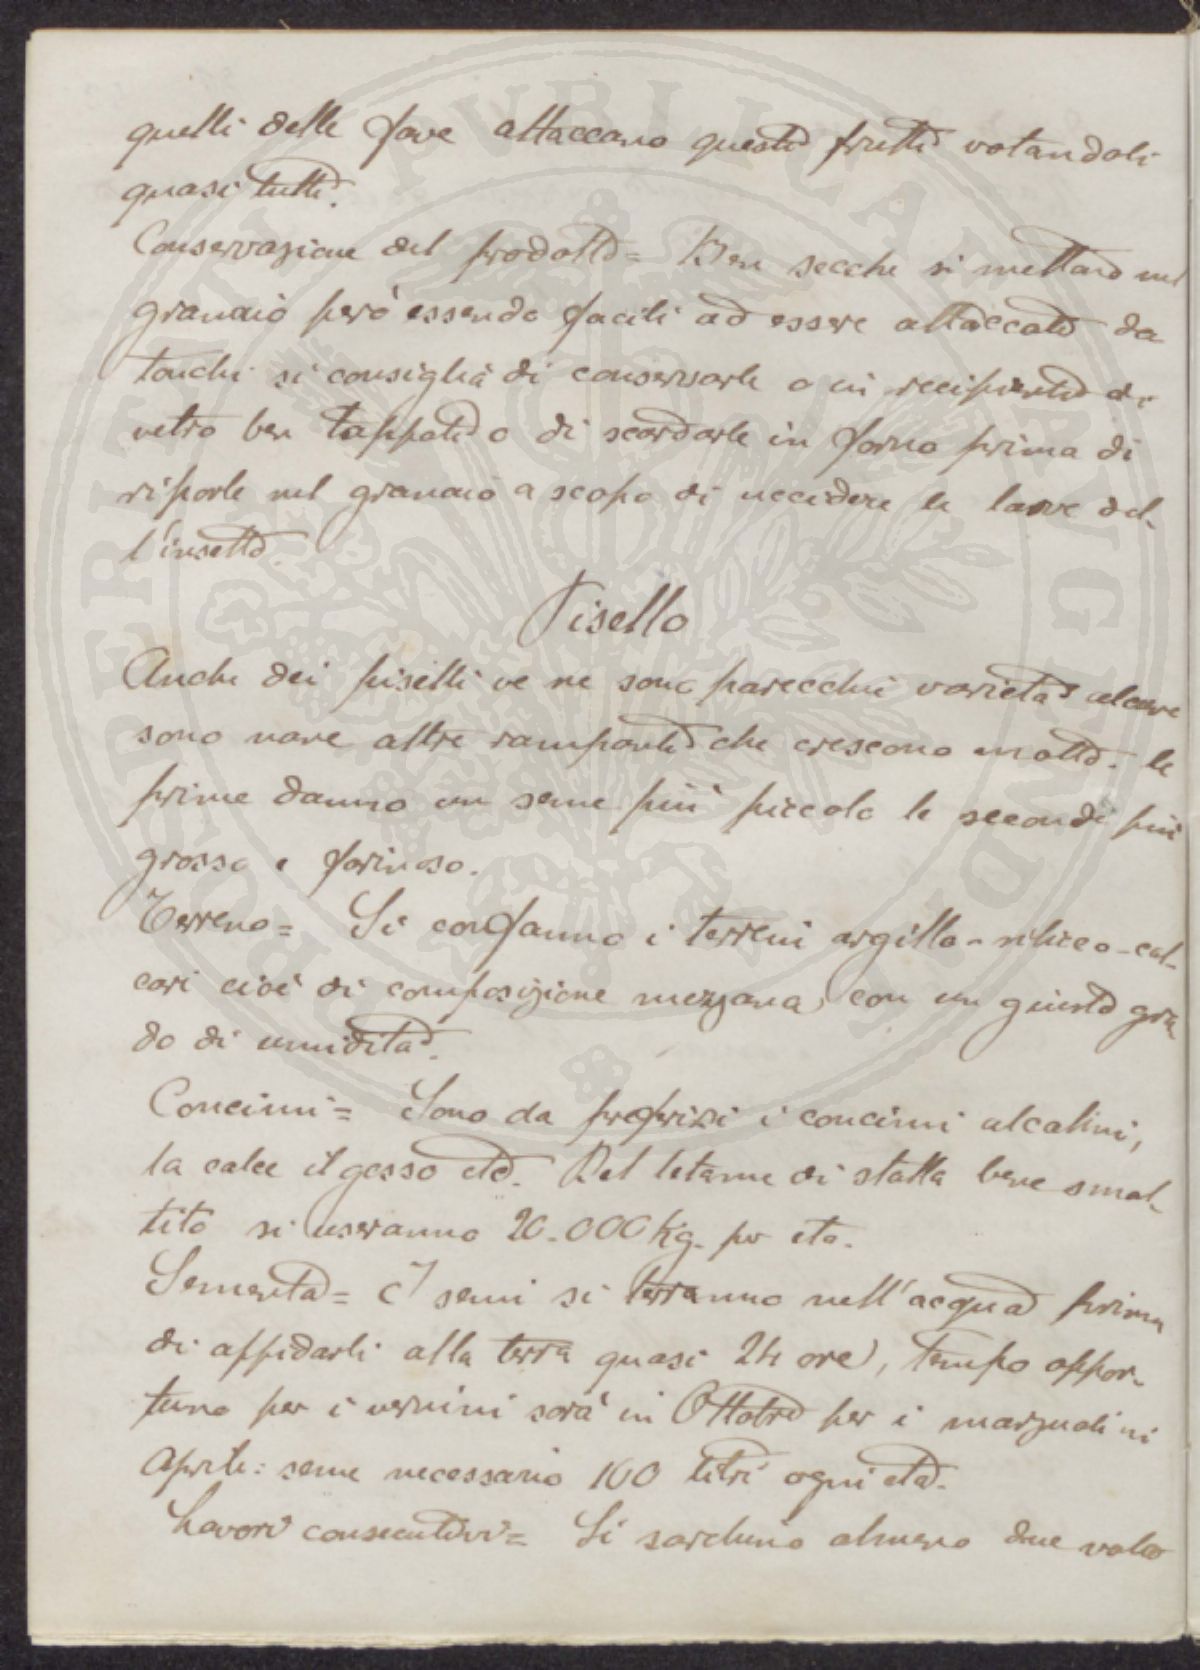 quelli delle fave attaccano questi frutti votandoli
quasi tutti.
Conservazione del prodotto = Ben secche si mettano nel
granaio però essendo facili ad essere attaccate da
tonchi si consiglia di conservarle o in recipienti di
vetro ben tappati o di scardarle in forno prima di
riporle nel granaio a scopo di uccidere le larve del-
l'insetto.
Pisello
Anche dei piselli ve ne sono parecchie varietà alcune
sono nane altre rampanti che crescono molto. le
prime danno un seme più piccolo le secondi più
grosso e farinoso.
Terreno = Si confanno i terreni argillo-siliceo-cal-
cari cioè di composizione mezzana con un giusto gra
do di umidità.
Concimi = Sono da preferirsi i concimi alcalini,
la calce il gesso etc. Del letame di stalla bene smal-
tito si useranno 20.000 Kg. per eta.
Sementa = I semi si terranno nell'acqua prima
di affidarli alla terra quasi 24 ore, tempo oppor-
tuno per i vernini sarà in Ottobre per i marzuoli in
Aprile: seme necessario 100 litri ogni eta.
Lavori consecutivi = Si sarchino almeno due volte
PROSPERITATI PUBLICAE AUGENDAE